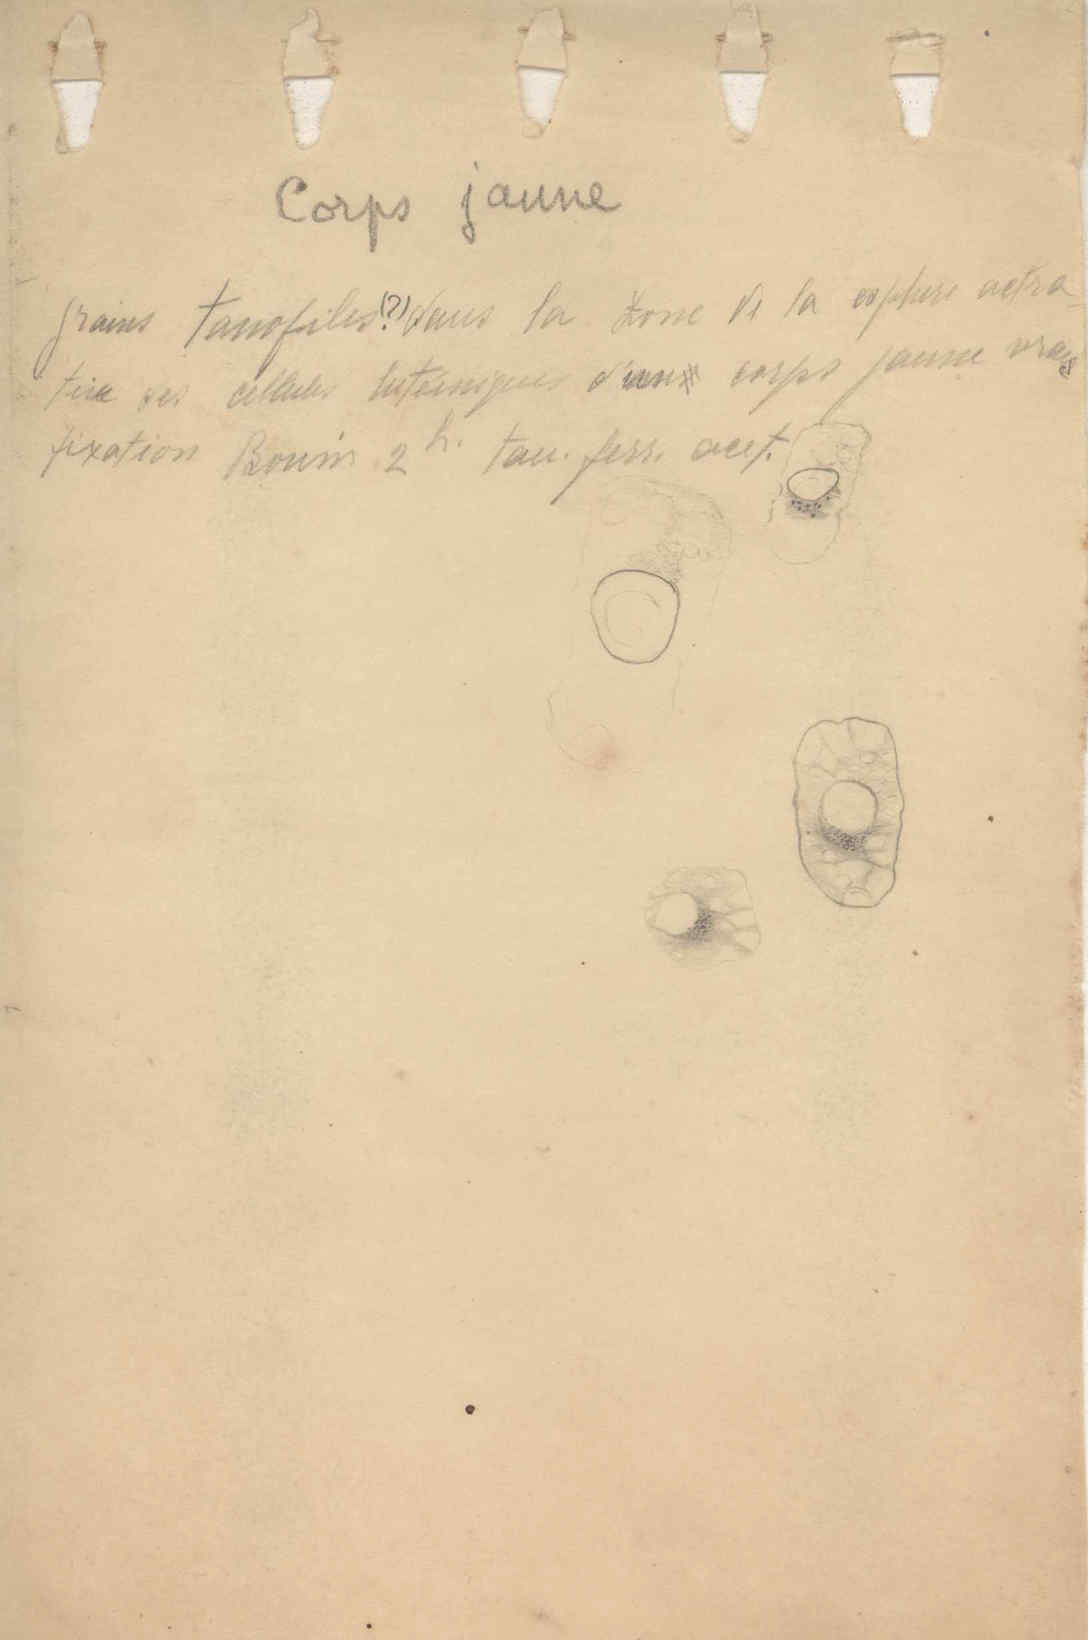 Corps jaune
grains tanofiles (?) dans la zone de la esphere actra
tive des cellules luteiniques d'un corps jaune vrai
fixation Bouin 2 h. tan. ferr. acet.